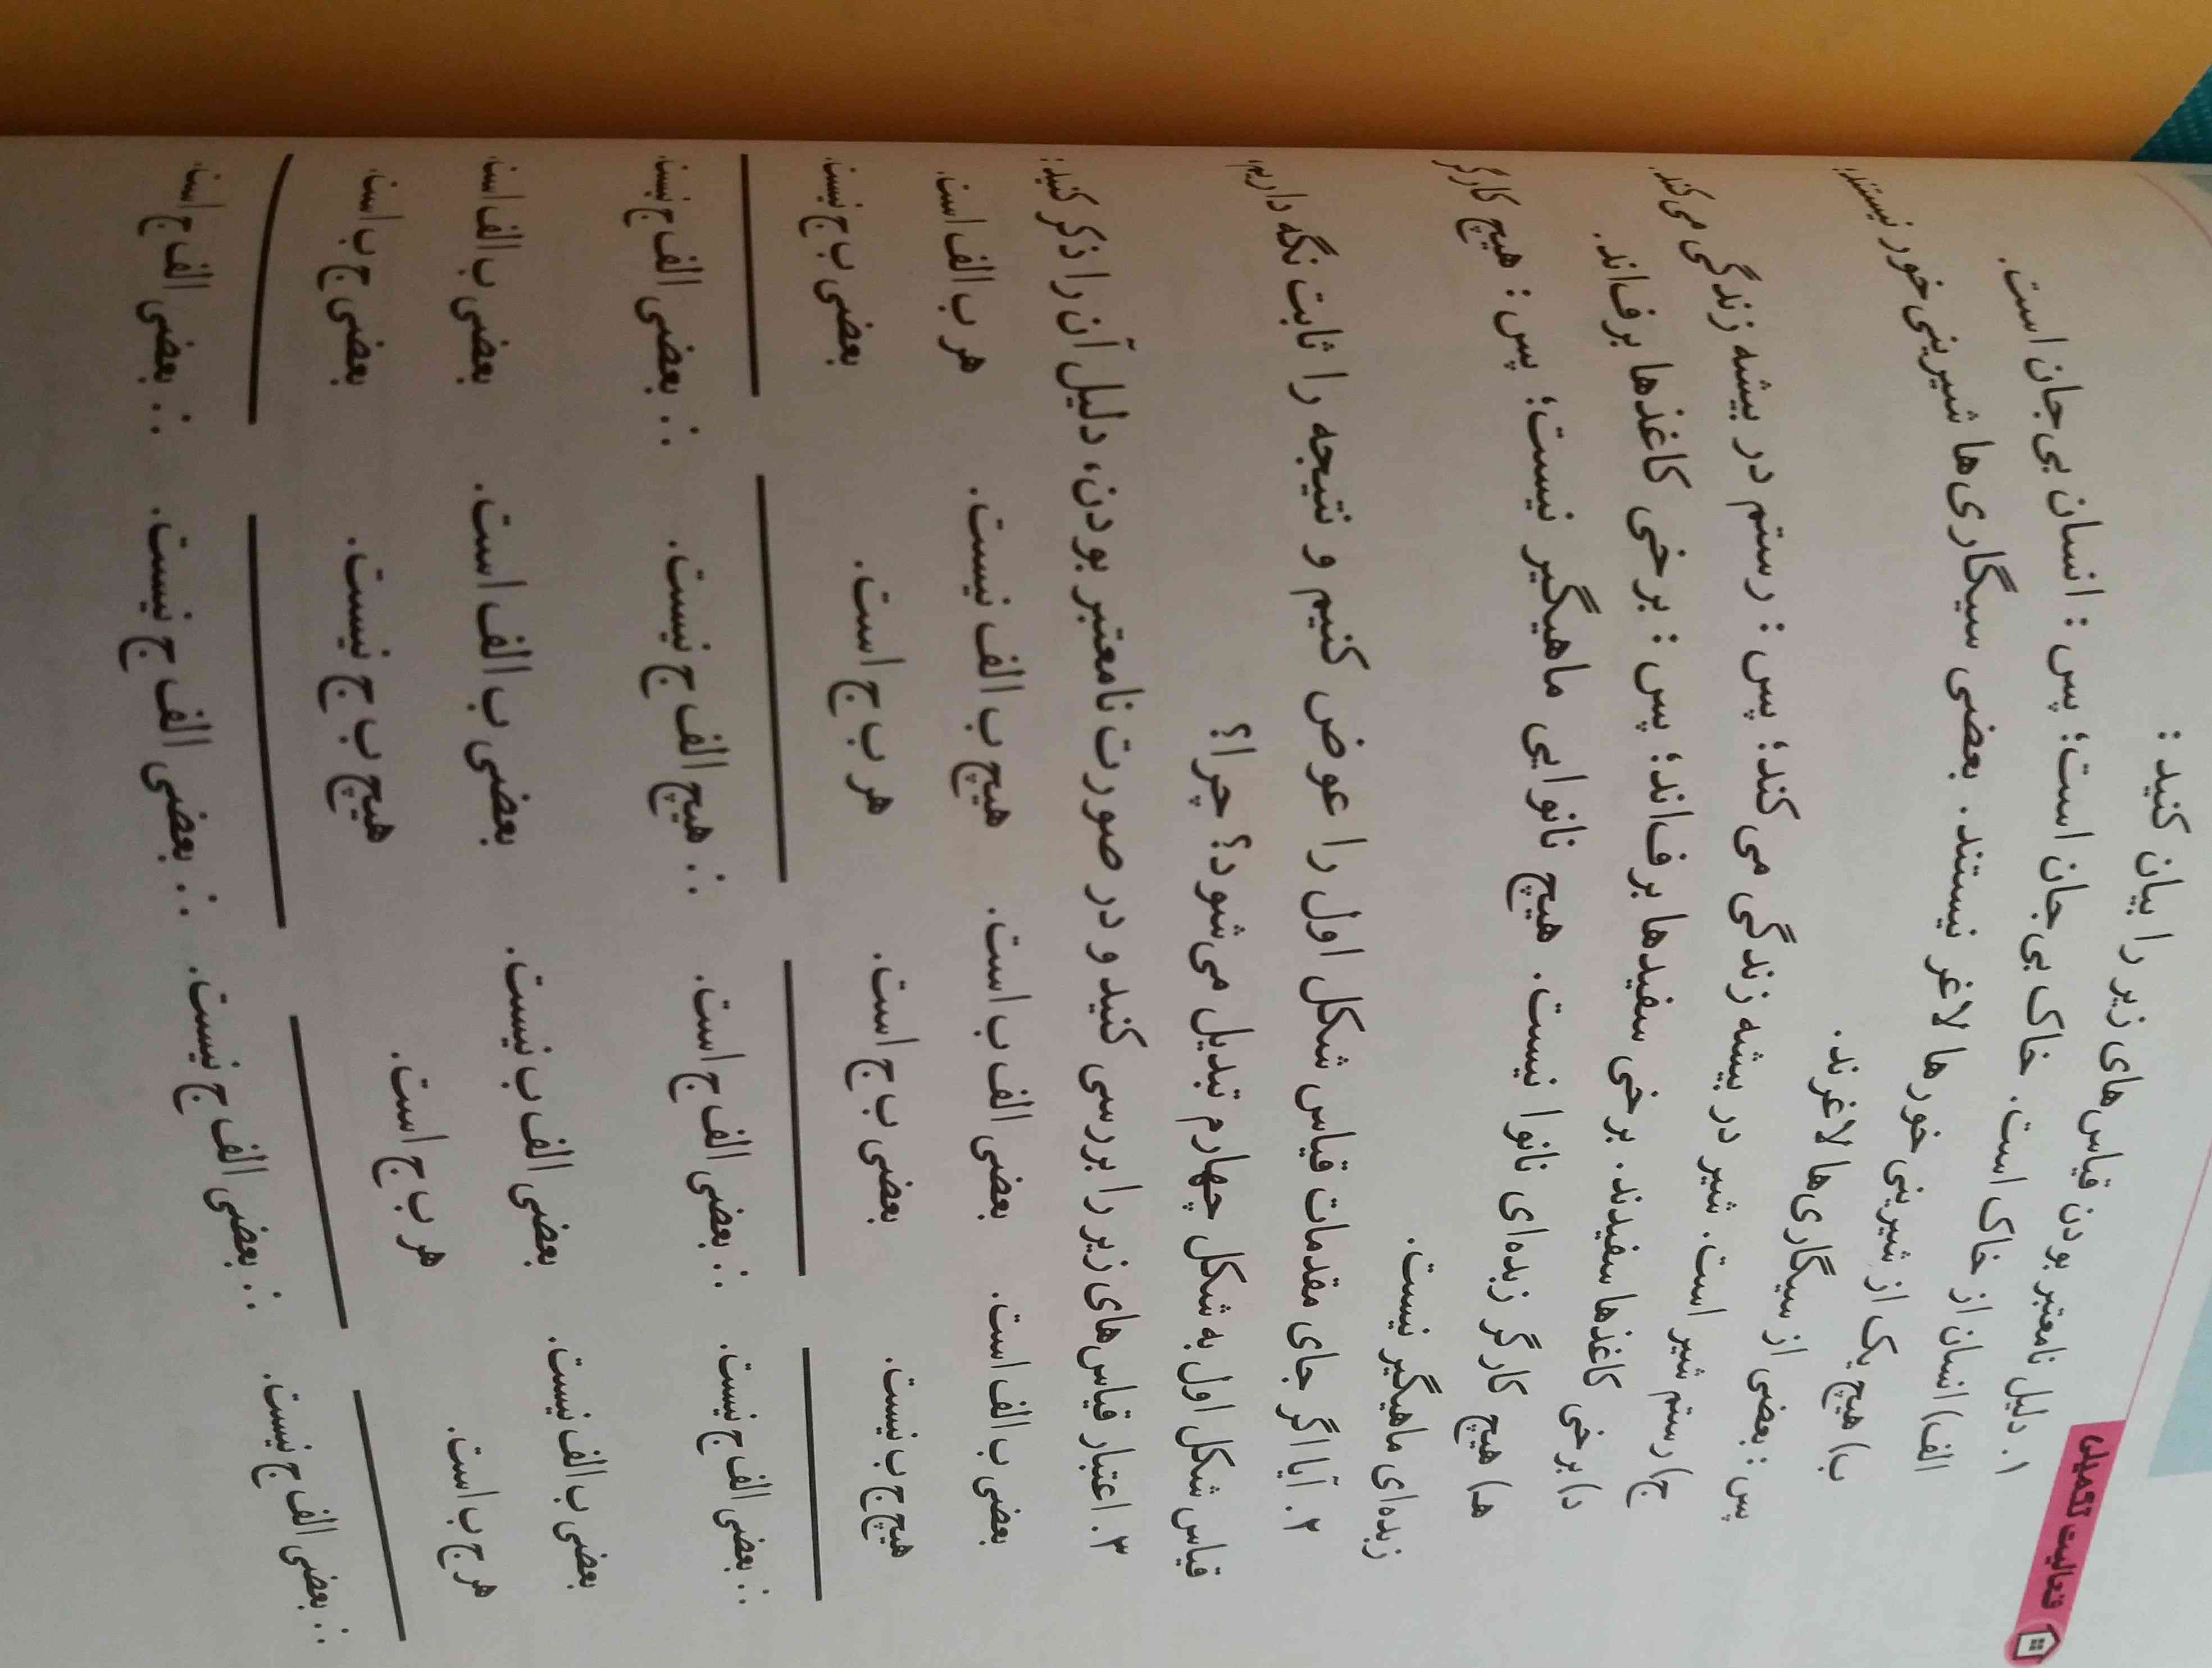 فعالیت تکمیلی
۱. دلیل نامعتبر بودن قیاس‌های زیر را بیان کنید :
الف) انسان از خاک است. خاک بی‌جان است؛ پس : انسان بی‌جان است.
ب) هیچ یک از شیرینی خورها لاغر نیستند. بعضی سیگاری‌ها شیرینی‌خور نیستند؛
پس : بعضی از سیگاری‌ها لاغرند.
ج) رستم شیر است. شیر در بیشه زندگی می‌کند؛ پس : رستم در بیشه زندگی می‌کند.
د) برخی کاغذها سفیدند. برخی سفیدها برف‌اند؛ پس : برخی کاغذها برف‌اند.
هـ) هیچ کارگر زبده‌ای نانوا نیست. هیچ نانوایی ماهیگیر نیست؛ پس : هیچ کارگر
زبده‌ای ماهیگیر نیست.
۲. آیا اگر جای مقدمات قیاس شکل اول را عوض کنیم و نتیجه را ثابت نگه داریم،
قیاس شکل اول به شکل چهارم تبدیل می‌شود؟ چرا؟
۳. اعتبار قیاس‌های زیر را بررسی کنید و در صورت نامعتبر بودن، دلیل آن را ذکر کنید :
بعضی ب الف است. بعضی الف ب است. هیچ ب الف نیست. هر ب الف است.
هیچ ج ب نیست. بعضی ب ج است. هر ب ج است. بعضی ب ج نیست.
∴ بعضی الف ج نیست. ∴ بعضی الف ج است. ∴ هیچ الف ج نیست. ∴ بعضی الف ج نیست.
بعضی ب الف نیست. بعضی الف ب نیست. بعضی ب الف است. بعضی ب الف است.
هر ج ب است. هر ب ج است. هیچ ب ج نیست. بعضی ج ب است.
∴ بعضی الف ج نیست. ∴ بعضی الف ج نیست. ∴ بعضی الف ج نیست. ∴ بعضی الف ج است.